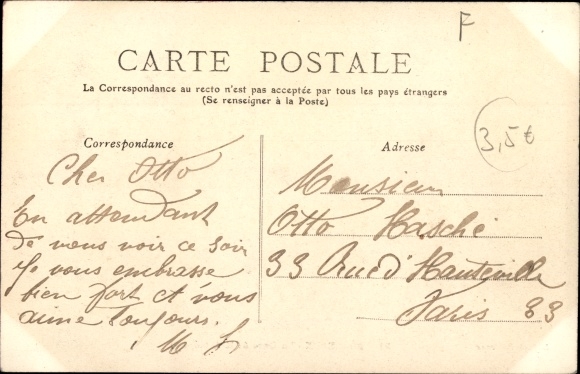 F
CARTE POSTALE
La Correspondance au recto n'est pas acceptée par tous les pays étrangers
(Se renseigner à la Poste)
3,5€
Correspondance
Cher Otto
En attendant
de vous voir ce soir
je vous embrasse
bien fort et vous
aime toujours.
M
Adresse
Monsieur
Otto Hasché
33 Rue d'Hauteville
Paris